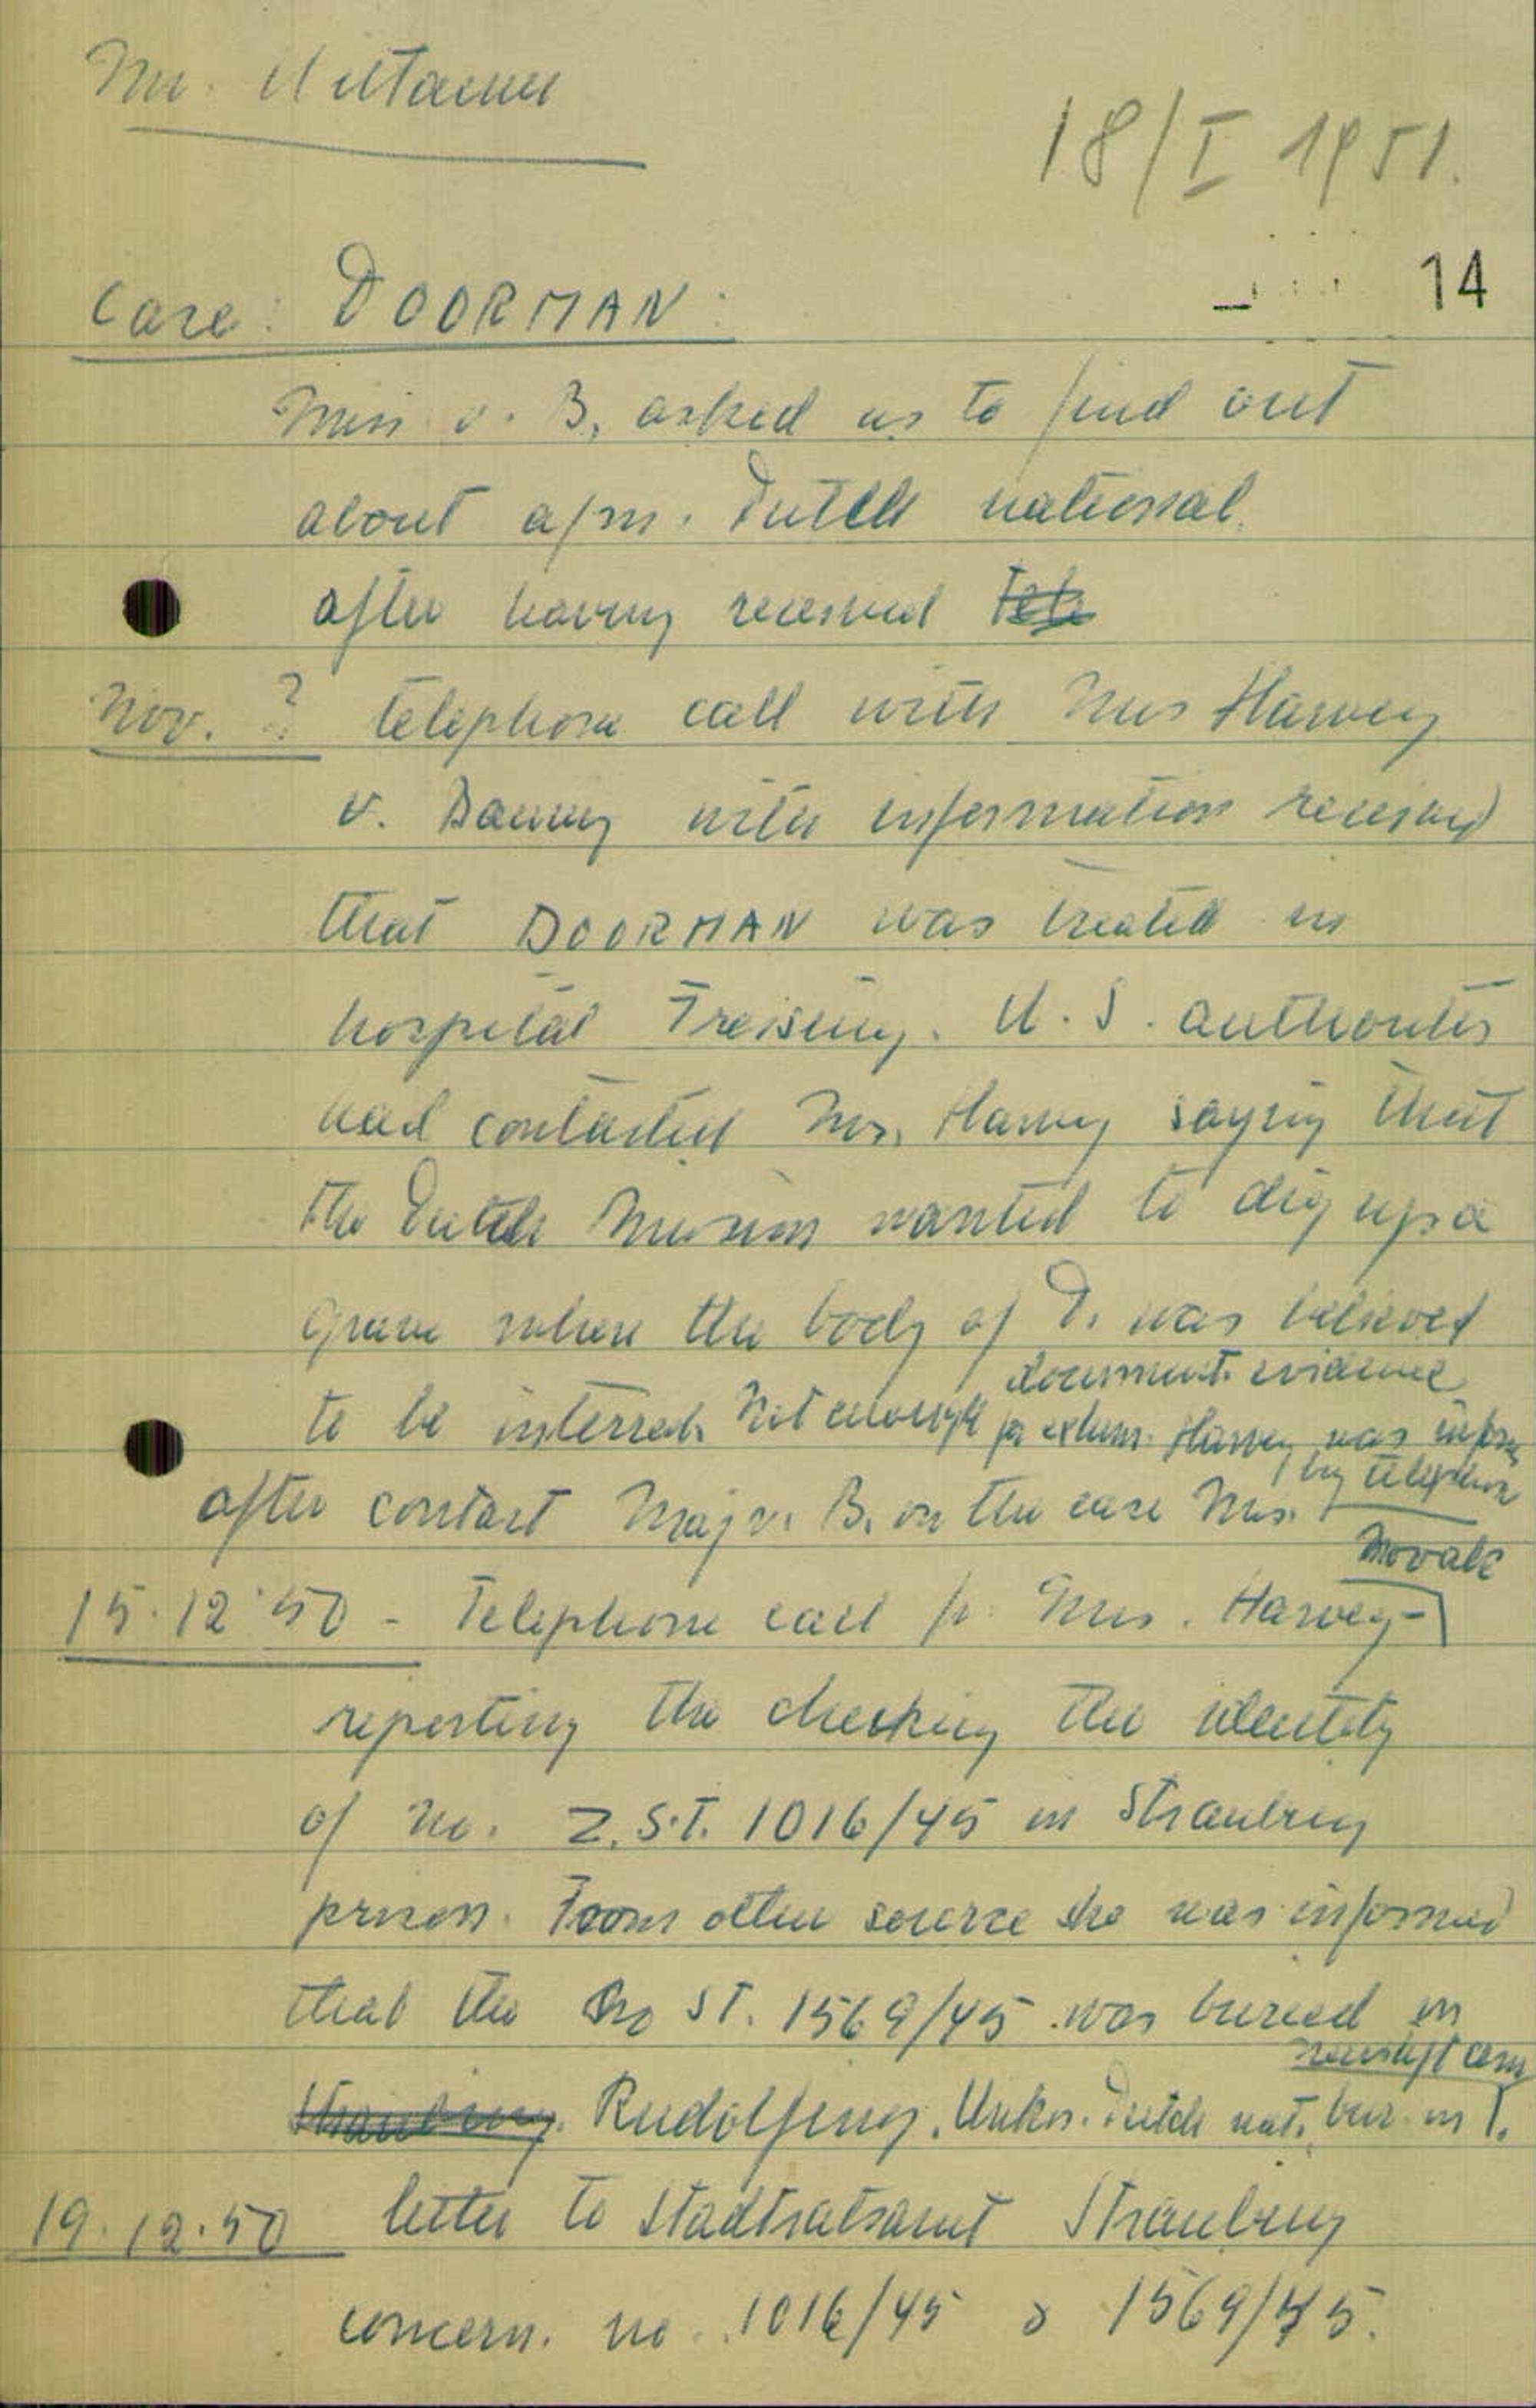 18/I 1951.
14
Case: DOORMAN:
Miss v. B. asked us to find out
about a/m. Dutch national.
after having received Tele
Nov. ? telephone call with Mrs Harvey
v. with information received
that DOORMAN was treated in
hospital Freising. U.S. authorities
had contacted Mrs. Harvey saying that
the Dutch Mission wanted to dig up a
grave where the body of D. was believed
document. evidence
to be interred. Not enough for exhum. Harvey was inform
by telephone
after contact Maj v. B. on the case Mrs.
15.12.50 - Telephone call fr. Mrs. Harvey-
Novak
reporting the checking the identity
of No. Z.S.T. 1016/45 in Straubing
prison. From other source she was informed
that the No ST. 1569/45 was buried in
Straubing. Rudolfing. Unkn. Dutch nat. bur. in T.
19.12.50 letter to Stadtratsamt Straubing
concern. no. 1016/45 & 1569/45.